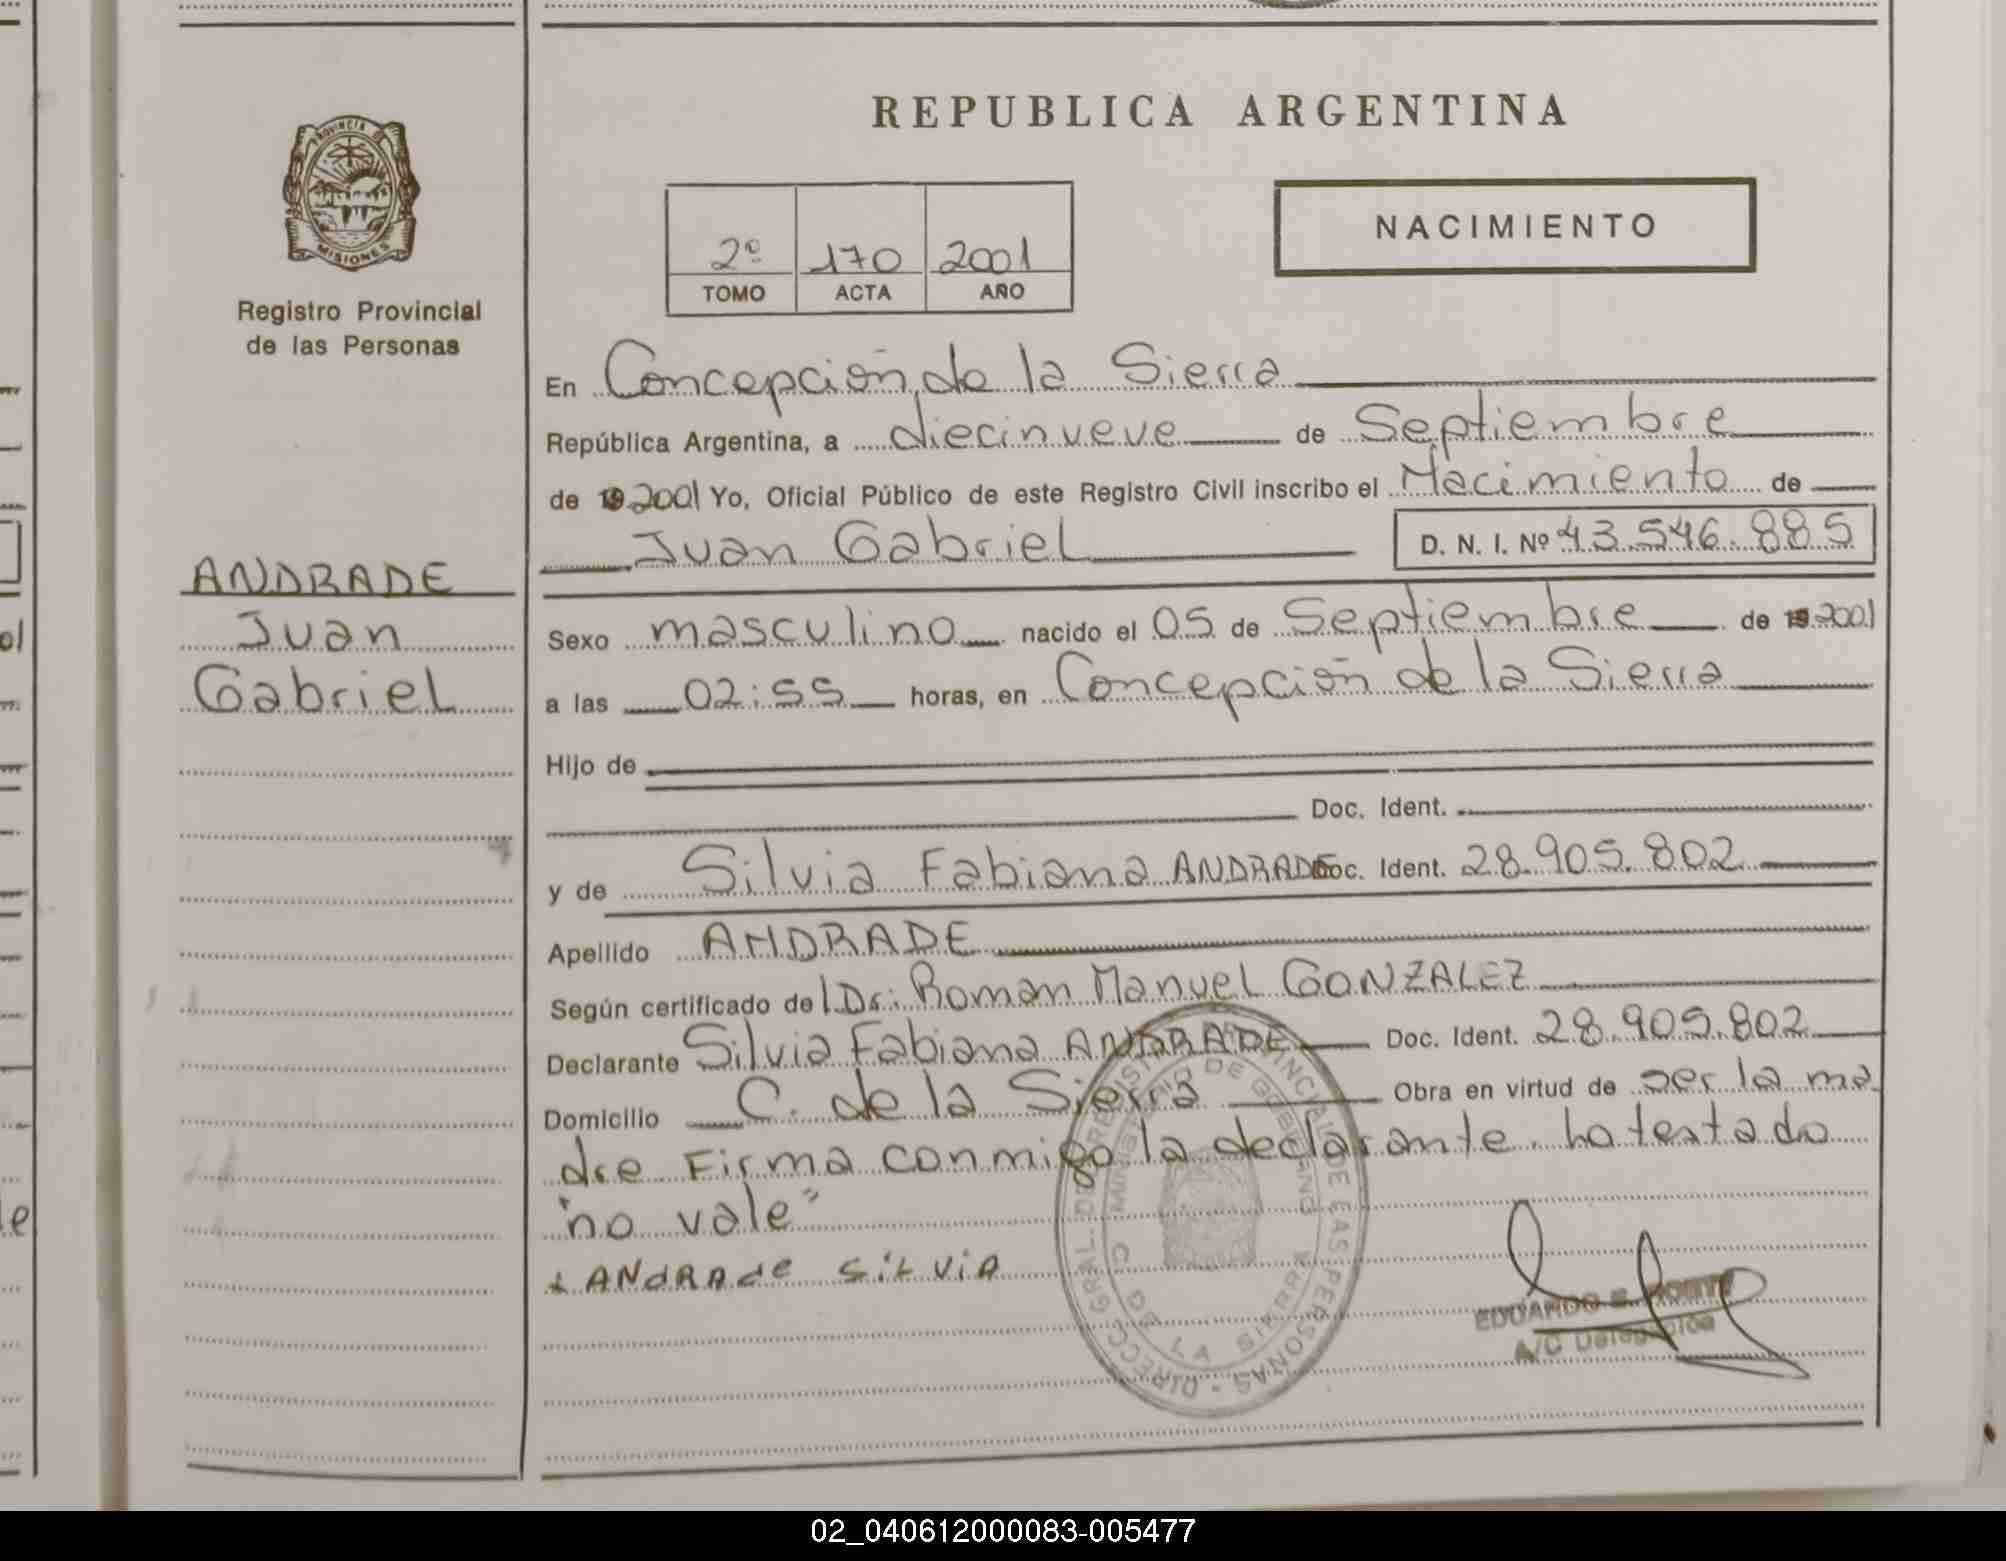 REPUBLICA ARGENTINA
PROVINCIA DE
MISIONES
Registro Provincial
de las Personas
NACIMIENTO
2º 170 2001
TOMO ACTA AÑO
En Concepción de la Sierra
República Argentina, a diecinueve de Septiembre
de 19 2001 Yo, Oficial Público de este Registro Civil inscribo el Nacimiento de
Juan Gabriel D. N. I. Nº 43.546.885
ANDRADE
Juan
Gabriel
Sexo masculino nacido el 05 de Septiembre de 19 2001
a las 02:55 horas, en Concepción de la Sierra
Hijo de
Doc. Ident.
y de Silvia Fabiana ANDRADE Doc. Ident. 28.905.802
Apellido ANDRADE
Según certificado del Dr: Roman Manuel GONZALEZ
Declarante Silvia Fabiana ANDRADE Doc. Ident. 28.905.802
Domicilio C. de la Sierra Obra en virtud de ser la ma
dre Firma conmigo la declarante. Lo testado
"no vale"
ANdRAde SiLViA
DIRECC. GRAL. DE REGISTRO PROVINCIAL DE LAS PERSONAS
MINISTERIO DE GOBIERNO
C. DE LA SIERRA
EDUARDO E.
A/C Delegación
02_040612000083-005477